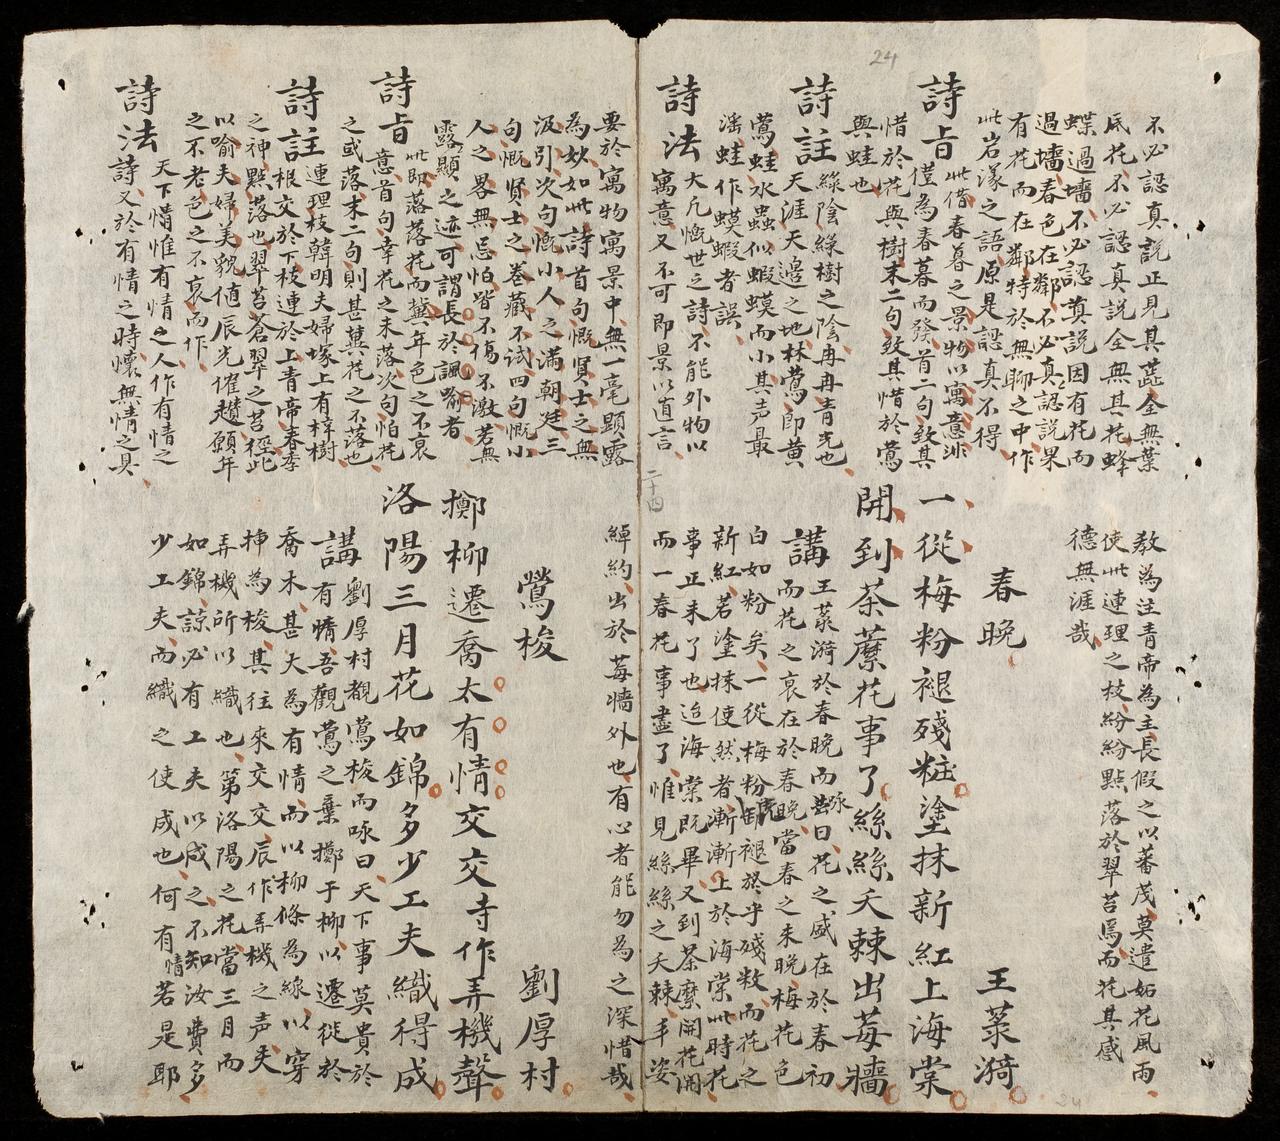 24
不必認真說正見其蕋全無葉
底花不必認真説全無其花蜂
蝶過墻不必認真説因有花而
過墻春色在鄰不必真認説果
有花而在鄰特於無聊之中作
此岩漾之語原是認真不得
詩旨
此借春暮之景物以寓意非
僅為春暮而發首二句致其
惜於花與樹末二句致其惜於鶯
與蛙也
詩註
綠陰綠樹之陰冉冉青光也
天涯天邉之地林鶯即黄
鶯蛙水蟲似蝦蟆而小其声最
滛蛙作蟆蝦者誤
詩法
大凢慨世之詩不能外物以
寓意又不可即景以道言
二十四
教為注青帝為主長假之以蕃茂莫遣妬花風雨
使此連理之枝紛紛點落於翠苔焉而花其感
德無涯哉
春晚
王菉漪
一從梅粉褪殘粧塗抹新紅上海棠
開到荼蘼花事了絲絲夭棘出莓牆
講
王菉漪於春晚而咏曰花之盛在於春初
而花之衰在於春晚當春之未晚梅花色
白如粉矣一從梅粉卸褪於乎殘敗而花之
新紅若塗抹使然者漸漸上於海棠此時花
事正未了也迨海棠既畢又到荼縻開花開
而一春花事盡了惟見絲絲之夭棘丰姿
要於寓物寓景中無一毫顕露
為妙如此詩首句慨賢士之無
汲引次句慨小人之滿朝廷三
句慨賢士之巻藏不試四句慨小
人之畧無忌怕皆不傷不激若無
露顯之迹可謂長於諷喻者
詩旨
此即落落花而兾年色之不衰
意首句幸花之未落次句怕花
之或落末二句則甚兾花之不落也
詩註
連理枝韓明夫婦塚上有梓樹
根交於下枝連於上青帝春季
之神點落也翠苔蒼翠之苔徑此
以喻夫婦美貌值辰光催趲願年
之不老色之不衰而作
詩法
天下情惟有情之人作有情之
詩又於有情之時懷無情之具
綽約出於莓牆外也有心者能勿為之深惜哉
鶯梭
劉厚村
擲柳遷喬太有情交交寺作弄機聲
洛陽三月花如錦多少工夫織得成
講
劉厚村覩鶯梭而咏曰天下事莫貴於
有情吾觀鶯之棄擲于柳以遷徙於
喬木甚大為有情而以柳條為線以穿
挿為梭其往來交交辰作弄機之声夫
弄機所以織也第洛陽之花當三月而
如錦諒必有工夫以成之不知汝費多
少工夫而織之使成也何有情若是耶
24